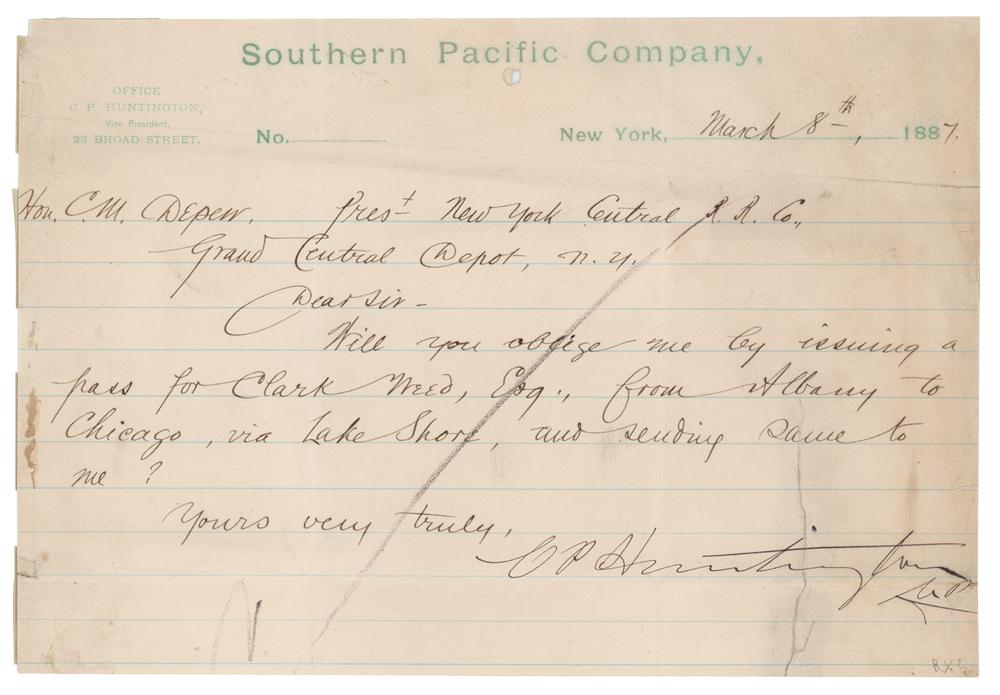 Southern Pacific Company,
OFFICE
C P. HUNTINGTON,
Vice President,
23 BROAD STREET.
No.
New York, March 8th, 1887.
Hon. C. M. Depew, Prest New York Central R. R. Co.,
Grand Central Depot, N. Y.
Dear Sir –
Will you oblige me by issuing a
pass for Clark Weed, Esq., from Albany to
Chicago, via Lake Shore, and sending same to
me?
Yours very truly,
C P Huntington